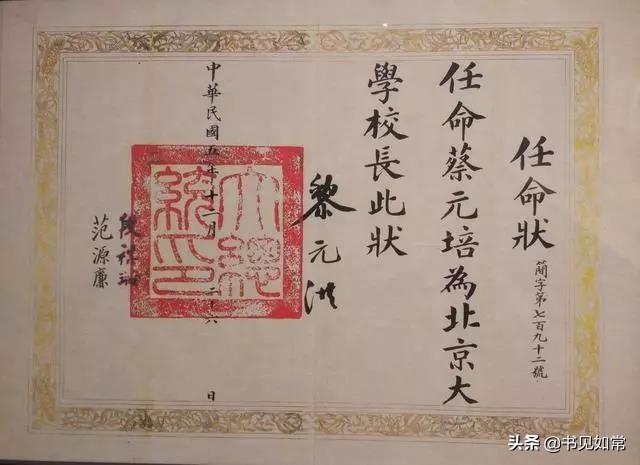 任命狀
簡字第七百九十二號
任命蔡元培為北京大
學校長此狀
黎元洪
大總統印
中華民國五年十二月二十六日
段祺瑞
范源廉
头条 @书见如常